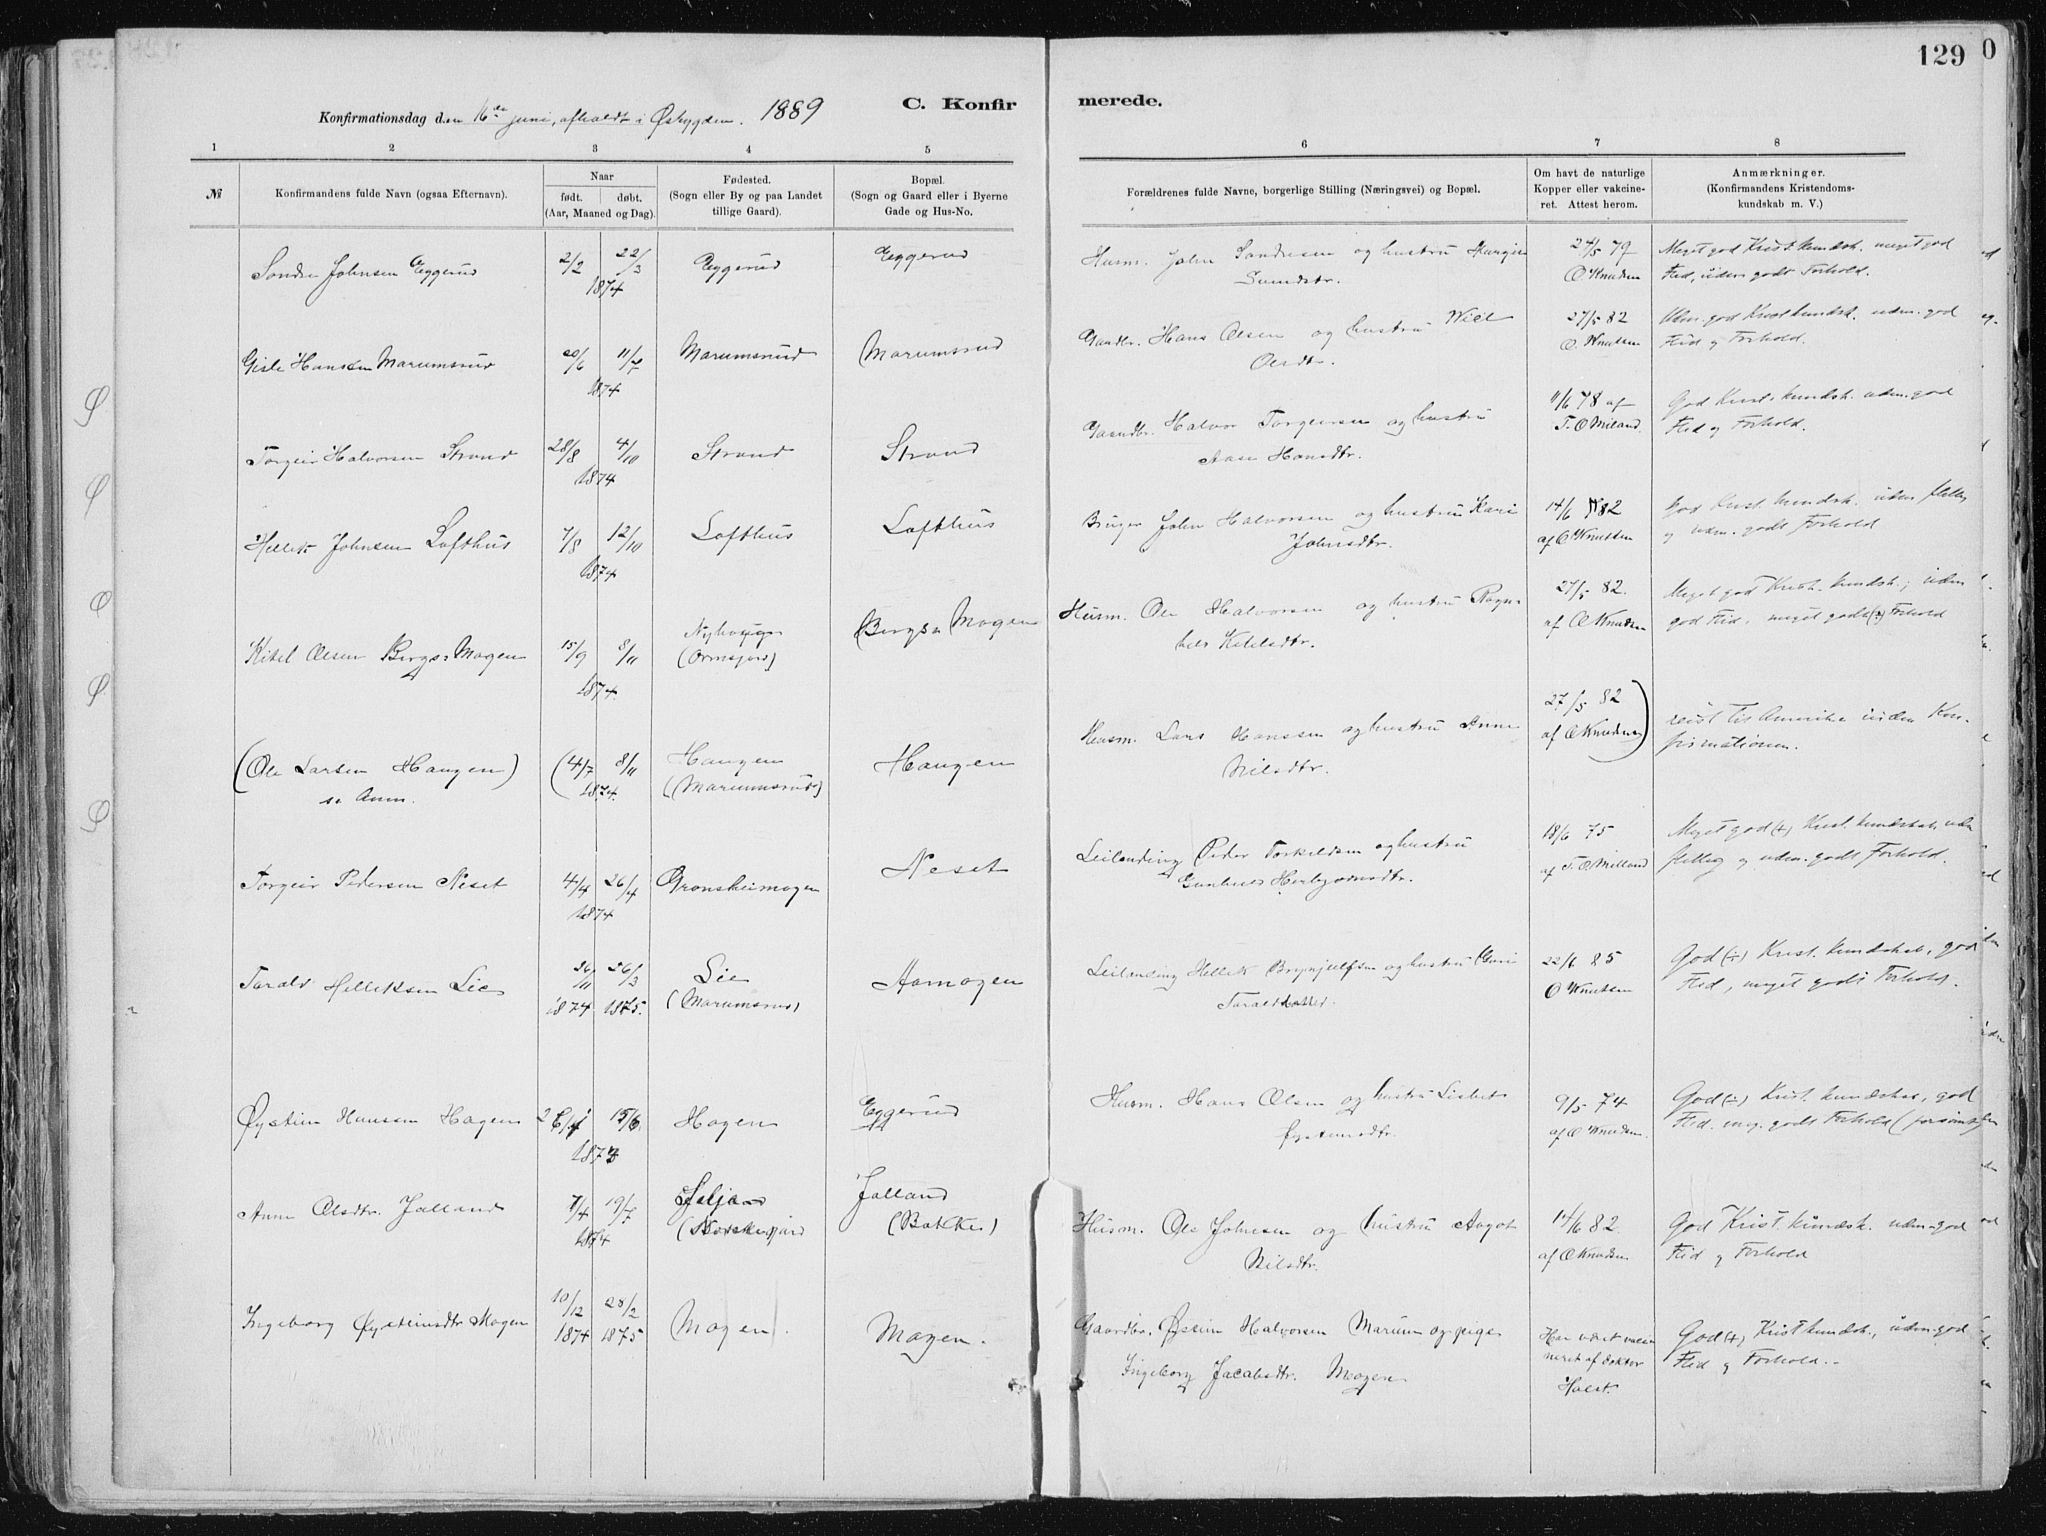 129
0
C. Konfir
merede.
Konfirmationsdag den 16de juni, afholdt i Østbygden. 1889
1 2 3 4 5 6 7 8
№
Konfirmandens fulde Navn (ogsaa Efternavn).
Naar
født. døbt.
(Aar, Maaned og Dag).
Fødested.
(Sogn eller By og paa Landet
tillige Gaard).
Bopæl.
(Sogn og Gaard eller i Byerne
Gade og Hus-No.
Forældrenes fulde Navne, borgerlige Stilling (Næringsvei) og Bopæl.
Om havt de naturlige
Kopper eller vakcine-
ret. Attest herom.
Anmærkninger.
(Konfirmandens Kristendoms-
kundskab m. V.)
Sondre Johnsen Eggerud 2/2 22/3 Eggerud Eggerud Husm. John Sondresen og hustru 24/5 79 Meget god Krist.kundsk. meget god
1874 Svendsdtr. O Knudsen Flid, uden godt Forhold.
Gisle Hansen Marumsrud 20/6 11/7 Marumsrud Marumsrud Gaardbr. Hans Olsen og hustru 27/5 82 Udm. god Kristkundsk. udm. god
1874 Olsdtr. O. Knutsen Flid og Forhold.
Torgeir Halvorsen Strand 28/8 4/10 Strand Strand Gaardbr. Halvor Torgersen og hustru 11/6 78 af God Krist. kundsk. udm. god
1874 Aase Hansdtr. T. O Miland Flid og Forhold.
Hellik Johnsen Lofthus 7/8 12/10 Lofthus Lofthus Bruger John Halvorsen og hustru Kari 14/6 82 God Krist. kundsk. udm flittig
1874 Johnsdtr. af O Knutsen og udm. godt Forhold
Kitel Olsen Bergs. Mogen 15/9 8/11 (Ormsjord) Bergs. Mogen Husm. Ole Halvorsen og hustru Ragn- 27/5 82. Meget god Krist. kundsk., uden
1874. hild Kittilsdtr. af O Knudsen god Flid, meget godt Forhold
(Ole Larsen Haugen) (4/7 8/11 Haugen Haugen Husm. Lars Hanssen og hustru Anne 27/5 82 reist til Amerika inden Kon-
se Anm. 1874. (Marumsrud) Nilsdtr. af O Knudsen) firmationen.
Torgeir Pedersen Neset 4/4 26/4 Gronsheimogen Neset Leilending Peder Torkildsen og hustru 18/6 75 Meget god (+) Krist. kundskab, udm
1874 Gunhild af T. O Milland flittig og udm. godt Forhold.
Tarald Helliksen Lie 26/11 26/3 Lie Aamogen Leilending Hellik Brynjulfsen og hustru Guri 22/6 85 God (÷) Krist. kundskab, god
1874 1875. (Marumsrud) Taraldsdatter. O Knutsen Flid, meget godt Forhold.
Øystein Hansen Hagen 15/6 Hagen Eggerud Husm. Hans Olsen og hustru Lisbet 9/5 74 God (÷) Krist. kundskab, god
1873 Øysteinsdtr. af O Knudsen. Flid. meg. godt Forhold
Anne Olsdtr. Jalland 7/4 19/7 Selja Jalland Husm. Ole Johnsen og hustru Aagot 14/6 82 God Krist. kundsk. udm. god
1874 (Bakke) Nilsdtr. af O Knudsen Flid og Forhold
Ingeborg Øysteinsdtr Mogen 10/12 28/2 Mogen. Mogen. Gaardbr. Østein Halvorsen Marum og pige Har været vacci- God (+) Krist kundsk., udm. god
1874 1875 Ingeborg Jacobsdtr. Mogen neret af doktor Flid og Forhold.
Holst